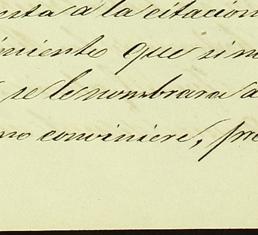 nta á la citacion
imiento que si no
se le nombrara a
no conviniere, pre